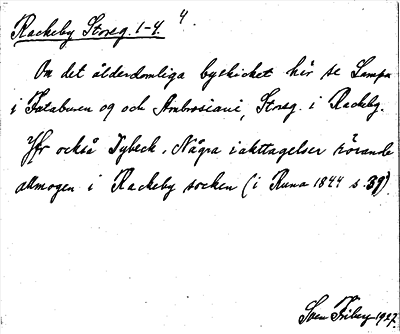 Rackeby Storeg. 1-4. 4
Om det ålderdomliga byskicket här se Lampa
i Fataburen 09 och Ambrosiani, Storeg. i Rackeby.
Jfr också Dybeck, Några iakttagelser rörande
allmogen i Rackeby socken (i Runa 1844 s. 39).
Sven 1927.